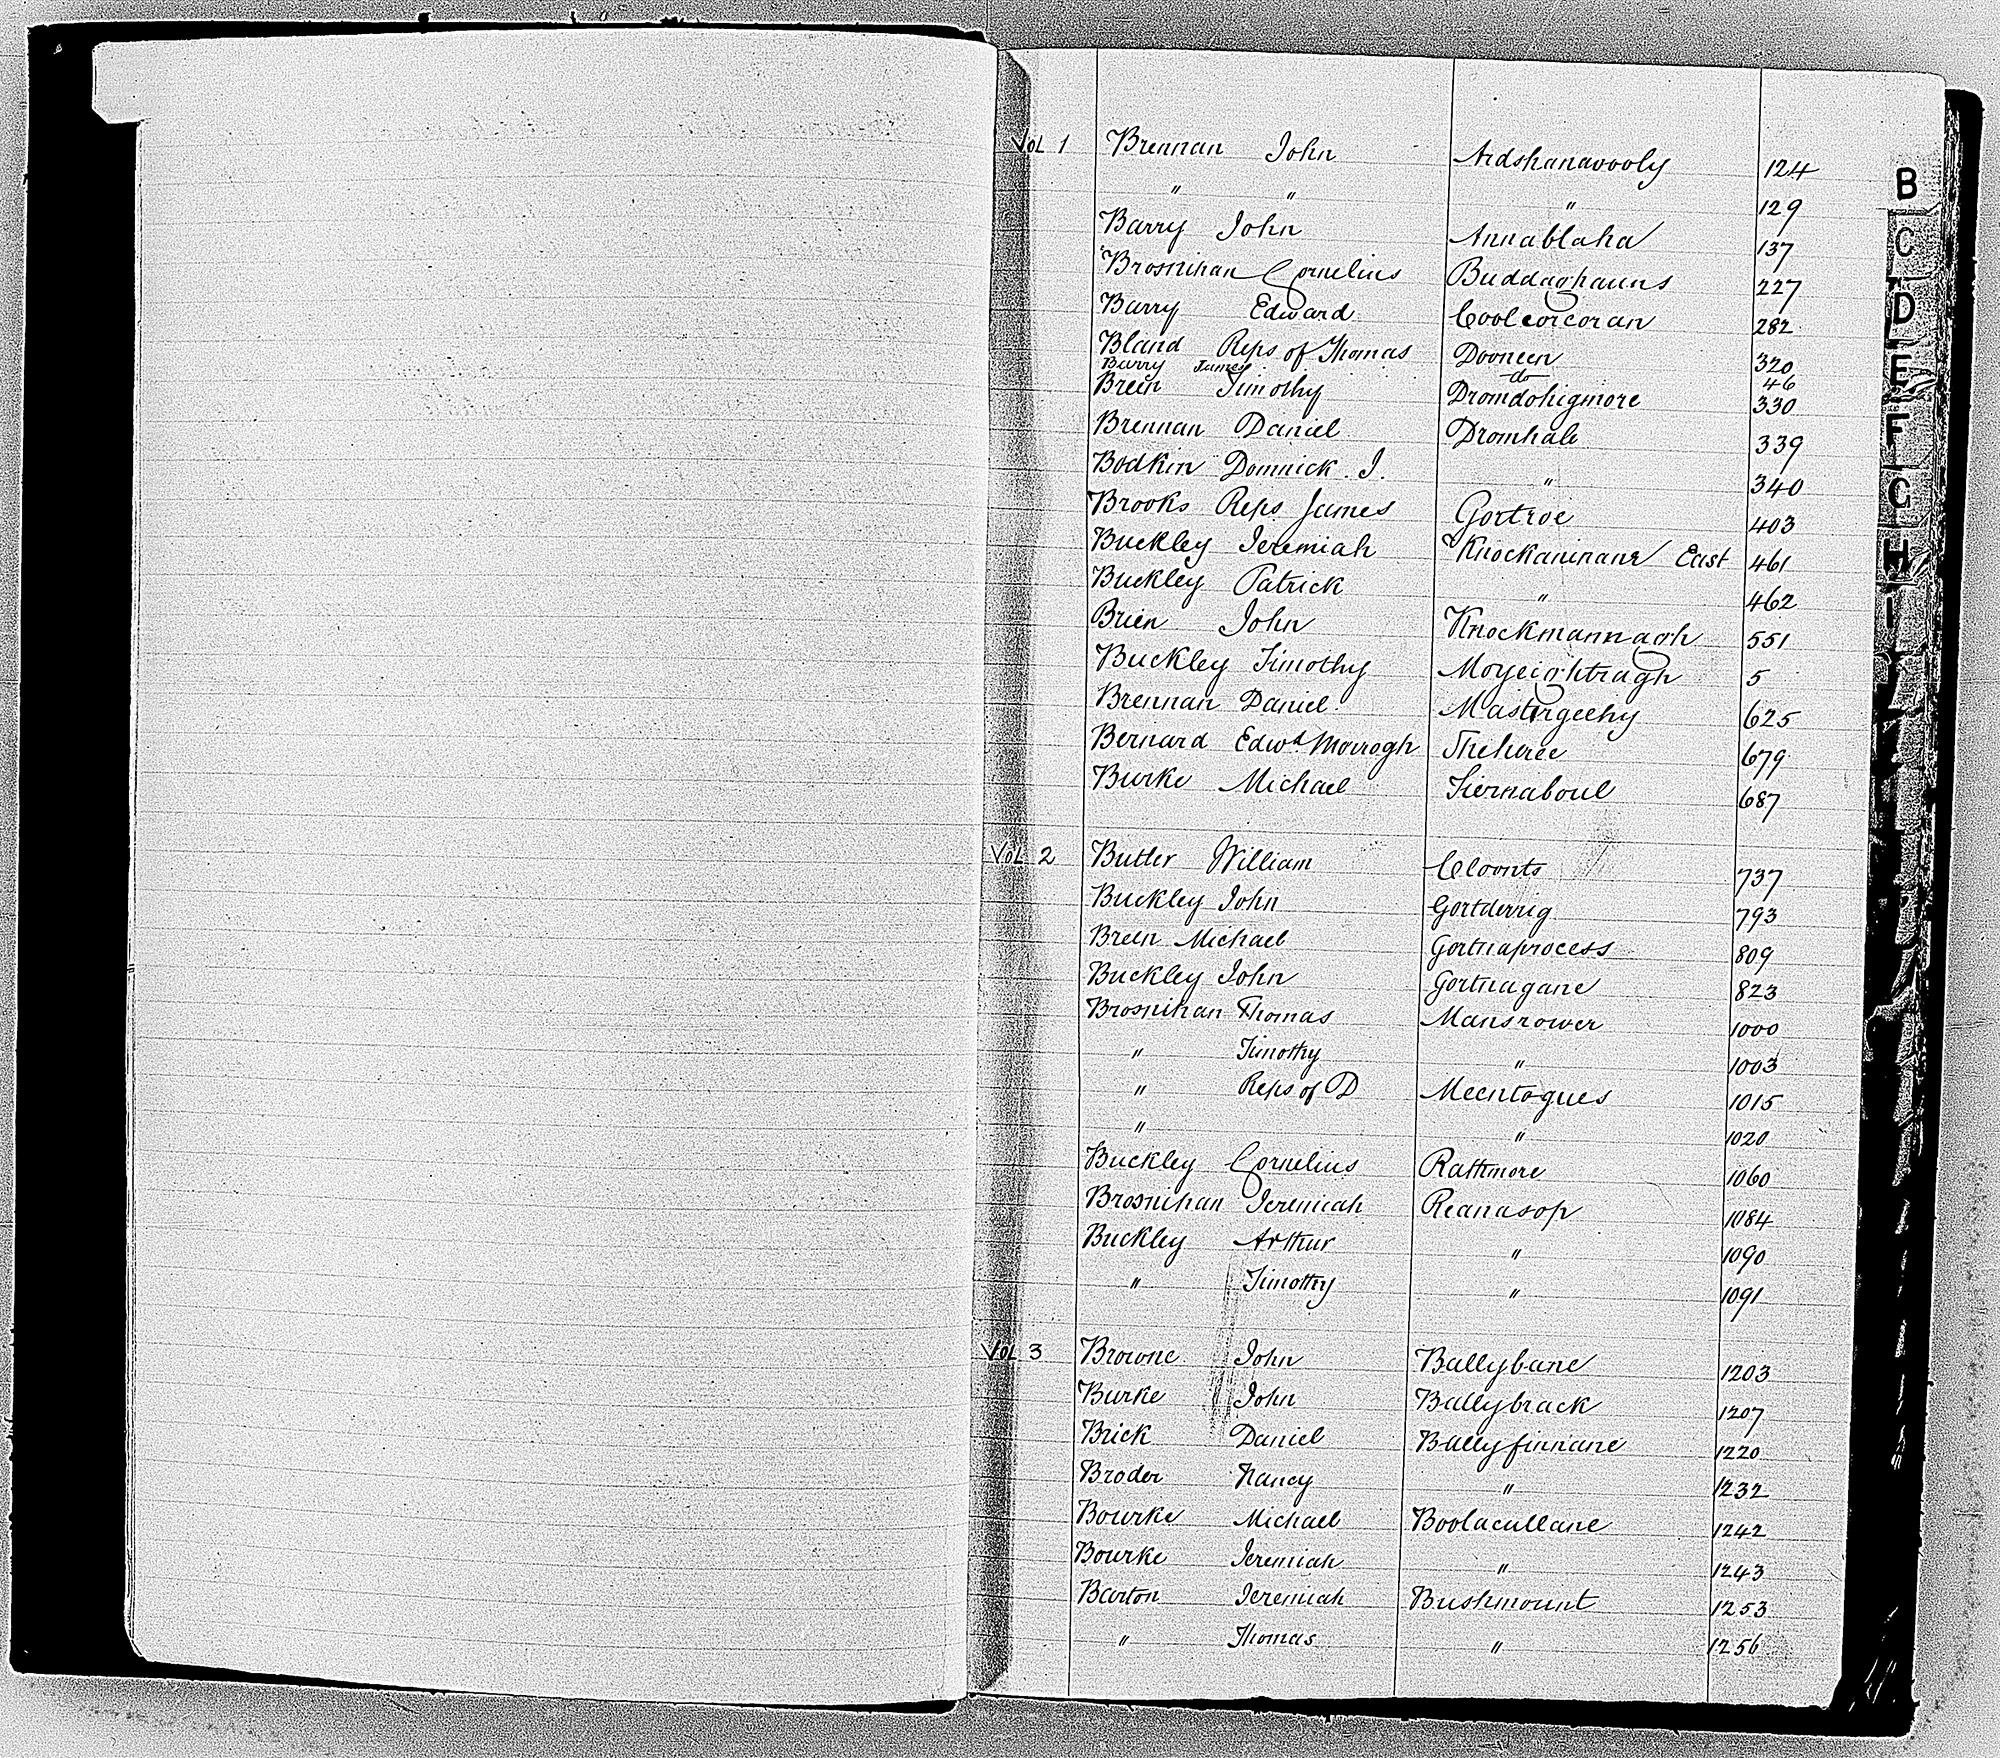 Vol 1 Brennan John Ardshanavooly 124
" " " 129
Barry John Annablaha 137
Brosnihan Cornelius Buddaghauns 227
Barry Edward Coolcorcoran 282
Bland Reps of Thomas Dooneen 320
Barry James do 46
Breen Timothy Dromdohigmore 330
Brennan Daniel Dromhale 339
Bodkin Domnick . J. " 340
Brooks Reps James Gortroe 403
Buckley Jeremiah Knockaninane East 461
Buckley Patrick " 462
Brien John Knockmannagh 551
Buckley Timothy Moyeightragh 5
Brennan Daniel Mastergeehy 625
Bernard Edwd Morrogh Sheheree 679
Burke Michael Tiernaboul 687
Vol 2 Butler William Cloonts 737
Buckley John Gortderrig 793
Breen Michael Gortnaprocess 809
Buckley John Gortnagane 823
Brosnihan Thomas Mansrower 1000
" Timothy " 1003
" Reps of D Meentogues 1015
" " 1020
Buckley Cornelius Rathmore 1060
Brosnihan Jeremiah Reanasop 1084
Buckley Arthur " 1090
" Timothy " 1091
Vol 3 Browne John Ballybane 1203
Burke John Ballybrack 1207
Brick Daniel Ballyfinnane 1220
Broder Nancy " 1232
Bourke Michael Boolacullane 1242
Bourke Jeremiah " 1243
Barton Jeremiah Bushmount 1253
" Thomas " 1256
B
C
D
E
F
G
H
I